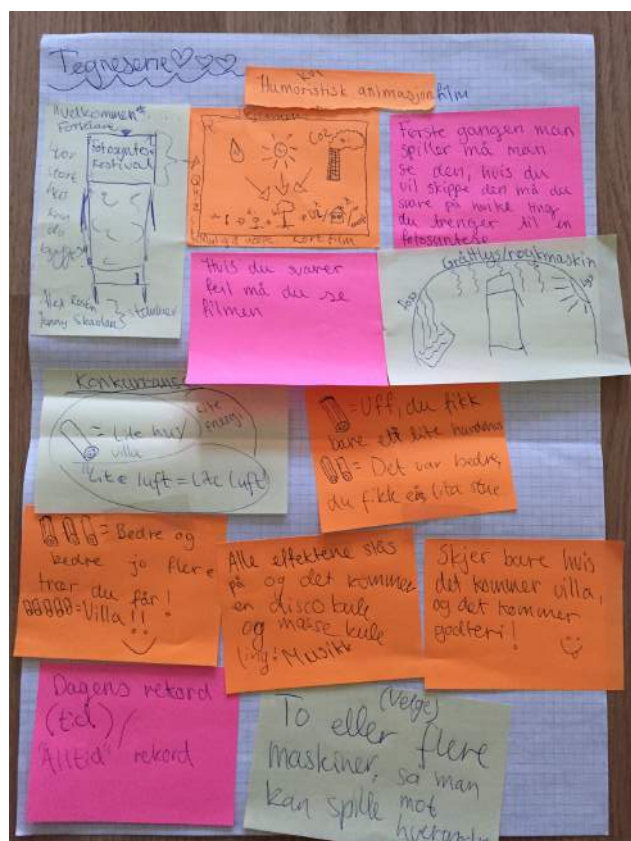 Tegneserie
Humoristisk animasjonfilm
"Velkommen"
Fotosyntese
festival
Hvor
store
Alex Rosén
Jenny Skavlan
stemmer
CO2
kort film
Første gangen man
spiller må man
se den, hvis du
vil skippe den må du
svare på hvilke ting
du trenger til en
fotosyntese
Hvis du svarer
feil må du se
filmen
Grått lys/røykmaskin
Lys
Lys
Konkurranse
= Lite hus/
villa
Lite
energi
Lite luft = Lite luft
= Uff, du fikk
bare ett lite hundehus
= Det var bedre,
du fikk en lita stue
= Bedre og
bedre jo flere
trær du får!
= Villa!!
Alle effektene slås
på og det kommer
en disco kule
og masse kule
ling! Musikk
Skjer bare hvis
det kommer villa,
og det kommer
godteri!
Dagens rekord
(tid)/
"Alltid" rekord
(Velge)
To eller flere
maskiner, så man
kan spille mot